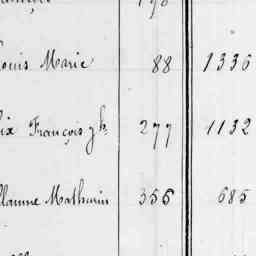 ouis Marie 88 1336
ix François 277 1132
llaume Mathurin 356 685